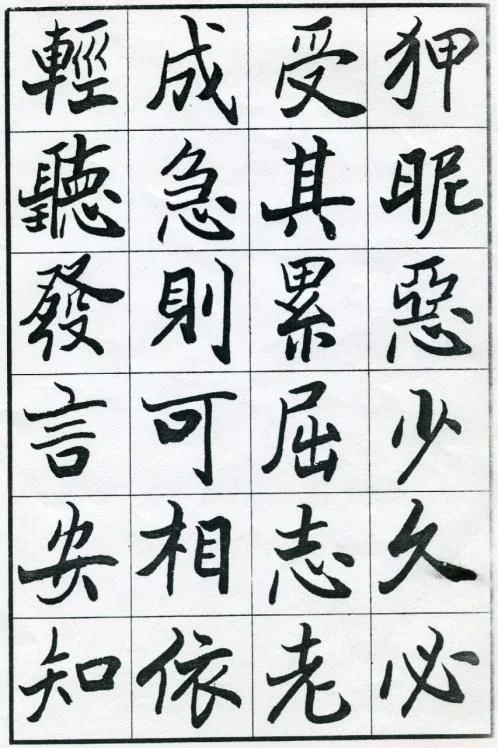 狎昵惡少久必
受其累屈志老
成急則可相依
輕聽發言安知